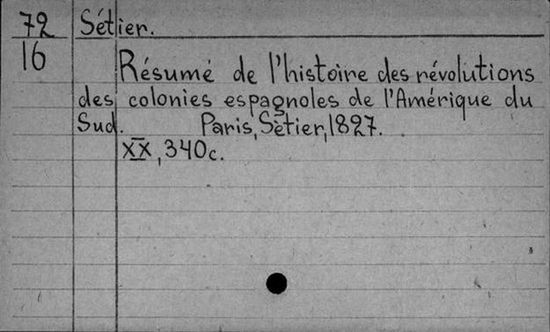 72 Sétier.
16
Résumé de l'histoire des révolutions
des colonies espagnoles de l'Amérique du
Sud. Paris, Sétier, 1827.
XX, 340c.